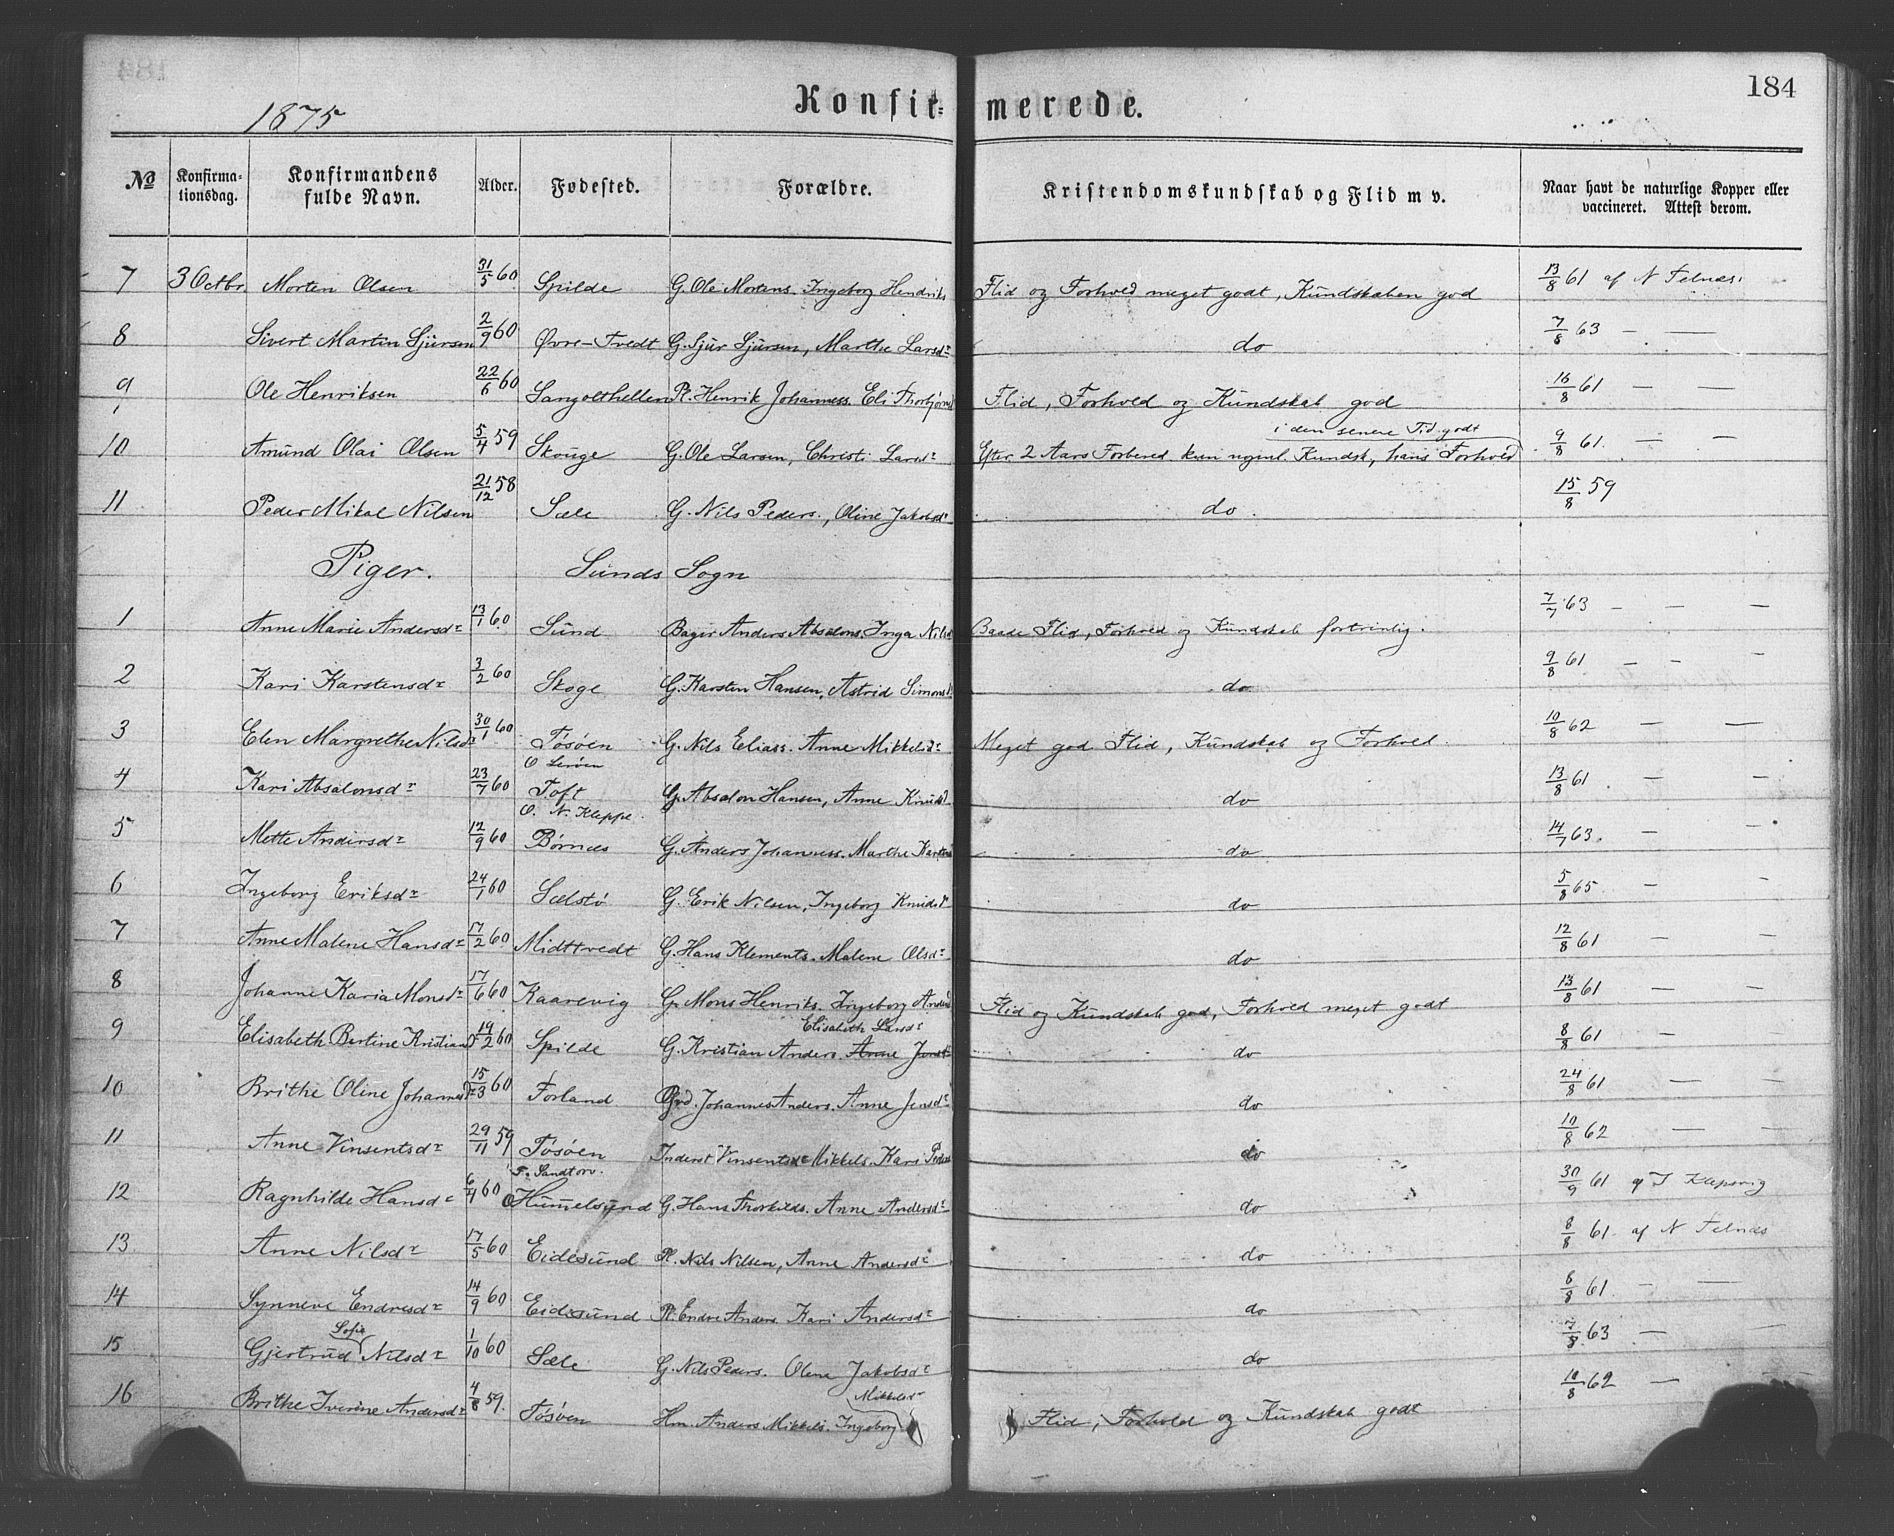 1875 Konfir= merede. 184
No Konfirma-tionsdag. Konfirmandens fulde Navn. Alder. Fødested. Forældre. Kristendomskundskab og Flid m v. Naar havt de naturlige Kopper eller vaccineret. Attest derom.
7 3 Octbr. Morten Olsen 31/5 60 Spilde G. Ole Mortens. Ingeborg Hendriks Flid og Forhold meget godt, Kundskaben god 13/8 61 af N Telnæs
8 Sivert Martin Sjursen 2/9 60 Øvre-Tvedt G. Sjur Sjursen, Marthe Larsdr do 7/8 63 — —
9 Ole Henriksen 22/6 60 Langolthellen Pl. Henrik Johanness. Eli Thorbjørnsd Flid, Forhold og Kundskab god 16/8 61 — —
i den senere Tid godt
10 Amund Olai Olsen 5/4 59 Skouge G. Ole Larsen, Christi Larsdr Efter 2 Aars Forbered. kun nginl. Kundsk, hans Forhold 9/8 61. — —
11 Peder Mikal Nilsen 21/12 58 Sæle G. Nils Peders., Oline Jakobsdr do. 15/8 59
Piger. Sunds Sogn
1 Anne Marie Andersdr 13/1 60 Sund Bager Anders Absalons. Inga Nilsd Baade Flid, Forhold og Kundskab fortrinlig. 7/7 63 — — —
2 Kari Karstensdr 3/2 60 Skoge G. Karsten Hansen, Astrid Simonsd do 9/8 61 — — —
3 Elen Margrethe Nilsdr 30/1 60 Tøsøen G. Nils Eliass. Anne Mikkelsdr Meget god Flid, Kundskab og Forhold. 10/8 62 — —
O Lerøen
4 Kari Absalonsdr 23/7 60 Toft G. Absalon Hansen, Anne Knudsd do 13/8 61 — —
O. N. Kleppe.
5 Mette Andersdr 12/9 60 Børnæs G. Anders Johanness. Marthe Karstens do 14/7 63. — —
6 Ingeborg Eriksdr 24/1 60 Sælstø G. Erik Nilsen, Ingeborg Knudsdr do 5/8 65 — —
7 Anne Malene Hansdr 17/2 60 Midttvedt G. Hans Klements. Malene Olsdr do 12/8 61 — —
8 Johanne Karia Monsdr 17/6 60 Kaarevig G. Mons Henriks. Ingeborg Anders Flid og Kundskab god, Forhold meget godt 13/8 61 — —
Elisabeth Larsdr
9 Elisabeth Bertine Kristiansd 19/2 60 Spilde G. Kristian Anders. Anne Jensdr do 8/8 61 —
10 Brithe Oline Johannesdr 15/3 60 Forland Grd. Johannes Anders. Anne Jensdr do 24/8 61 — —
11 Anne Vinsentsdr 29/11 59 Tøsøen Inderst Vinsents Mikkels. Kari Peders do 10/8 62 — —
F. Sandtorv.
12 Ragnhilde Hansdr 6/4 60 Hummelsund G. Hans Thorkilds. Anne Andersdr do 30/9 61 af T Klepsvig
13 Anne Nilsdr 17/5 60 Eidesund Pl. Nils Nilsen, Anne Andersdr do 8/8 61. af N Telnæs
14 Synneve Endresdr 14/9 60 Eidesund Pl. Endre Anders. Kari Andersdr do 8/8 61. — —
Sofie
15 Gjertrud Nilsdr 1/10 60 Sæle G. Nils Peders. Oline Jakobsdr do 7/8 63 — —
Mikkelsdr
16 Brithe Iverine Andersdr 4/8 59. Tøsøen Hm. Anders Mikkels. Ingeborg Flid, Forhold og Kundskab godt 10/8 62 — —